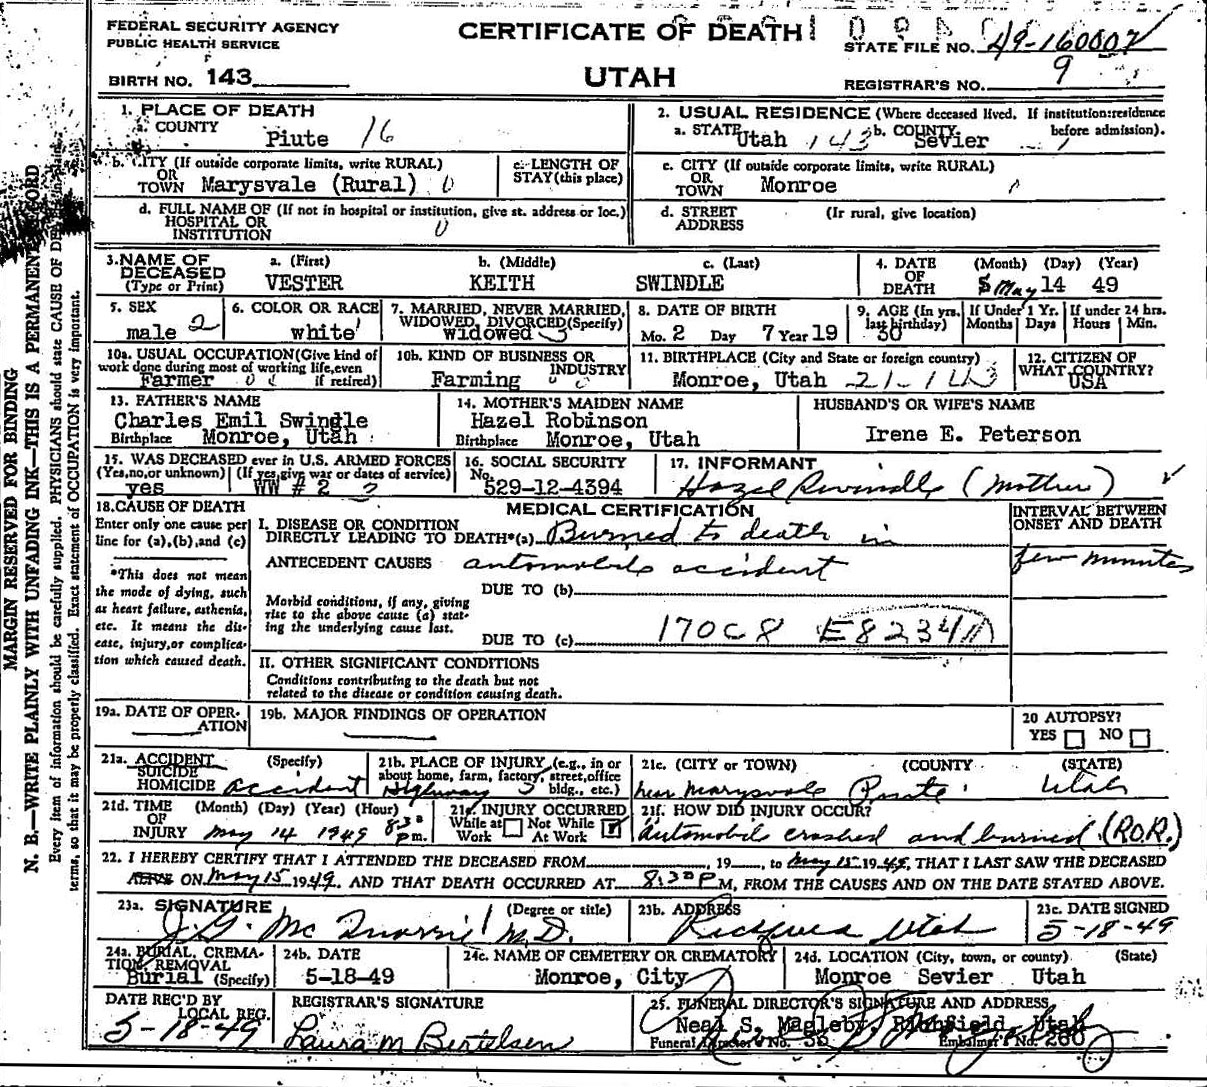 FEDERAL SECURITY AGENCY
PUBLIC HEALTH SERVICE
CERTIFICATE OF DEATH
STATE FILE NO. 49-160007
BIRTH NO. 143
UTAH
REGISTRAR'S NO. 9
1. PLACE OF DEATH
a. COUNTY Piute 16
2. USUAL RESIDENCE (Where deceased lived. If institution:residence before admission).
a. STATE Utah 143 b. COUNTY Sevier
b. CITY (If outside corporate limits, write RURAL)
OR TOWN Marysvale (Rural) 0
c. LENGTH OF STAY (this place)
c. CITY (If outside corporate limits, write RURAL)
OR TOWN Monroe
d. FULL NAME OF (If not in hospital or institution, give st. address or loc.)
HOSPITAL OR INSTITUTION 0
d. STREET ADDRESS (Ir rural, give location)
3. NAME OF DECEASED (Type or Print)
a. (First) VESTER
b. (Middle) KEITH
c. (Last) SWINDLE
4. DATE OF DEATH (Month) (Day) (Year)
May 14 49
5. SEX male 2
6. COLOR OR RACE white
7. MARRIED, NEVER MARRIED, WIDOWED, DIVORCED (Specify) widowed 3
8. DATE OF BIRTH Mo. 2 Day 7 Year 19
9. AGE (In yrs. last birthday) 30
If Under 1 Yr. Months Days
If under 24 hrs. Hours Min.
10a. USUAL OCCUPATION (Give kind of work done during most of working life, even if retired) Farmer
10b. KIND OF BUSINESS OR INDUSTRY Farming
11. BIRTHPLACE (City and State or foreign country) Monroe, Utah 21-143
12. CITIZEN OF WHAT COUNTRY? USA
13. FATHER'S NAME
Charles Emil Swingle
Birthplace Monroe, Utah
14. MOTHER'S MAIDEN NAME
Hazel Robinson
Birthplace Monroe, Utah
HUSBAND'S OR WIFE'S NAME
Irene E. Peterson
15. WAS DECEASED ever in U.S. ARMED FORCES
(Yes, no, or unknown) (If yes, give war or dates of service)
yes WW # 2 2
16. SOCIAL SECURITY No.
529-12-4394
17. INFORMANT
Hazel Swindle (Mother)
18. CAUSE OF DEATH
Enter only one cause per line for (a), (b), and (c)
*This does not mean the mode of dying, such as heart failure, asthenia, etc. It means the disease, injury, or complication which caused death.
MEDICAL CERTIFICATION
INTERVAL BETWEEN ONSET AND DEATH
I. DISEASE OR CONDITION
DIRECTLY LEADING TO DEATH*(a) Burned to death in
ANTECEDENT CAUSES automobile accident
few minutes
DUE TO (b)
Morbid conditions, if any, giving rise to the above cause (a) stating the underlying cause last.
DUE TO (c) 170C8 E8234
II. OTHER SIGNIFICANT CONDITIONS
Conditions contributing to the death but not related to the disease or condition causing death.
19a. DATE OF OPERATION
19b. MAJOR FINDINGS OF OPERATION
20 AUTOPSY?
YES NO
21a. ACCIDENT SUICIDE HOMICIDE (Specify) accident
21b. PLACE OF INJURY (e.g., in or about home, farm, factory, street, office bldg., etc.) Highway
21c. (CITY or TOWN) (COUNTY) (STATE)
near Marysvale Piute Utah
21d. TIME OF INJURY (Month) (Day) (Year) (Hour)
May 14 1949 8:30 pm.
21e. INJURY OCCURRED
While at Work Not While At Work
21f. HOW DID INJURY OCCUR?
Automobile crashed and burned (R.O.R.)
22. I HEREBY CERTIFY THAT I ATTENDED THE DECEASED FROM , 19 , to May 15 1949, THAT I LAST SAW THE DECEASED
ALIVE ON May 15 1949, AND THAT DEATH OCCURRED AT 8:30 P M, FROM THE CAUSES AND ON THE DATE STATED ABOVE.
23a. SIGNATURE (Degree or title)
M.D.
23b. ADDRESS
Richfield Utah
23c. DATE SIGNED
5-18-49
24a. BURIAL, CREMATION, REMOVAL (Specify) Burial
24b. DATE
5-18-49
24c. NAME OF CEMETERY OR CREMATORY
Monroe, City
24d. LOCATION (City, town, or county) (State)
Monroe Sevier Utah
DATE REC'D BY LOCAL REG.
5-18-49
REGISTRAR'S SIGNATURE
Laura M Bertelsen
25. FUNERAL DIRECTOR'S SIGNATURE AND ADDRESS
Neal S. Magleby, Richfield, Utah
Funeral Director's No. 36 Embalmer's No. 260
MARGIN RESERVED FOR BINDING
N. B.—WRITE PLAINLY WITH UNFADING INK—THIS IS A PERMANENT RECORD
Every item of information should be carefully supplied. PHYSICIANS should state CAUSE OF DEATH in plain terms, so that it may be properly classified. Exact statement of OCCUPATION is very important.